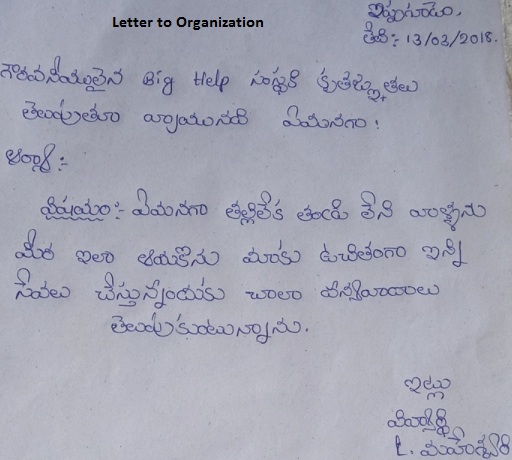 Letter to Organization
ఇప్పగూడెం,
తేది:- 13/03/2018.
గౌరవనీయులైన Big Help సంస్థకి కృతజ్ఞతలు
తెలుపుతూ వ్రాయునది ఏమనగా!
ఆర్యా:-
విషయం:- ఏమనగా తల్లిలేక తండ్రి లేని వాళ్ళను
మీర ఇలా ఆదుకొను మాకు ఉచితంగా ఇన్ని
సేవలు చేస్తున్నందుకు చాలా ధన్యవాదాలు
తెలుపుకుంటున్నాను.
ఇట్లు
L. మహేశ్వరి